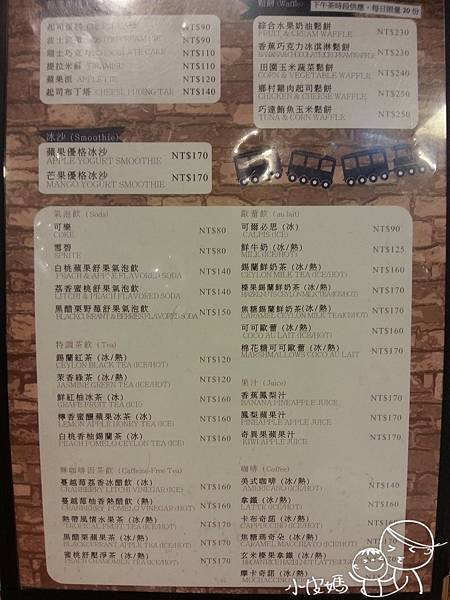 鬆餅 (Waffle) 下午茶時段供應，每日限量 20 份
NT$90
NT$90
CHOCOLATE CAKE NT$110
提拉米蘇 NT$140
蘋果派 APPLE PIE NT$120
起司布丁塔 CHEESE PUDING TART NT$140
綜合水果奶油鬆餅 NT$230
FRUIT & CREAM WAFFLE
香蕉巧克力冰淇淋鬆餅 NT$230
BANANA & CHOCOLATE ICE CREAM WAFFLE
田園玉米蔬菜鬆餅 NT$230
CORN & VEGETABLE WAFFLE
鄉村雞肉起司鬆餅 NT$250
CHICKEN & CHEESE WAFFLE
巧達鮪魚玉米鬆餅 NT$250
TUNA & CORN WAFFLE
冰沙 (Smoothie)
蘋果優格冰沙 NT$170
APPLE YOGURT SMOOTHIE
芒果優格冰沙 NT$170
MANGO YOGURT SMOOTHIE
氣泡飲 (Soda)
可樂 NT$80
COKE
雪碧 NT$80
SPRITE
白桃蘋果舒果氣泡飲 NT$140
PEACH & APPLE FLAVORED SODA
荔香蜜桃舒果氣泡飲 NT$140
LITCHI & PEACH FLAVORED SODA
黑醋栗野莓舒果氣泡飲 NT$150
BLACKCURRANT & BERRIES FLAVOREL SODA
特調茶飲 (Tea)
錫蘭紅茶 (冰/熱) NT$120
CEYLON BLACK TEA (ICE/HOT)
茉香綠茶 (冰/熱) NT$120
JASMINE GREEN TEA (ICE/HOT)
鮮紅柚冰茶 (冰) NT$160
GRAPE FRUIT TEA (ICE)
檸香蜜釀蘋果冰茶 (冰) NT$160
LEMON APPLE HONEY TEA (ICE)
白桃香柚錫蘭茶 (冰) NT$160
PEACH POMELO CEYLON TEA (ICE)
無咖啡因茶飲 (Caffeine-Free Tea)
蔓越莓荔香冰醋飲 (冰) NT$160
CRANBERRY LITCHI VINEGAR (ICE)
蔓越莓柚香熱醋飲 (熱) NT$160
CRANBERRY POMELO VINEGAR (HOT)
熱帶風情水果茶 (冰/熱) NT$170
TROPICAL FRUIT TEA (ICE/HOT)
黑醋栗蘋果茶 (冰/熱) NT$170
BLACKCURRANT APPLE TEA (ICE/HOT)
蜜桃舒壓淨茶 (冰/熱) NT$170
PEACH CHAMOMILE TEA (ICE/HOT)
歐蕾飲 (au lait)
可爾必思 (冰) NT$90
CALPIS (ICE)
鮮牛奶 (冰/熱) NT$125
MILK (ICE/HOT)
錫蘭鮮奶茶 (冰/熱) NT$160
CEYLON MILK TEA (ICE/HOT)
榛果錫蘭鮮奶茶(冰/熱) NT$170
HAZELNUTS CEYLON MILK TEA (ICE/HOT)
焦糖錫蘭鮮奶茶(冰/熱) NT$170
CARAMEL CEYLON MILK TEA (ICE/HOT)
可可歐蕾 (冰/熱) NT$160
COCO AU LAIT (ICE/HOT)
棉花糖可可歐蕾 (冰/熱) NT$170
MARSHMALLOWS COCO AU LAIT
果汁 (Juice)
香蕉鳳梨汁 NT$170
BANANA PINEAPPLE JUICE
鳳梨蘋果汁 NT$170
PINEAPPLE APPLE JUICE
奇異果蘋果汁 NT$170
KIWI APPLE JUICE
咖啡 (Coffee)
美式咖啡 (冰/熱) NT$140
AMERICANO (ICE/HOT)
拿鐵 (冰/熱) NT$160
LATTE (ICE/HOT)
卡布奇諾 (冰/熱) NT$160
CAPPUCCINO (ICE/HOT)
焦糖瑪奇朵 (冰/熱)
CARAMEL MACCHIATO (ICE/HOT)
玄米榛果拿鐵 (冰/熱)
BROWN RICE HAZELNUT LATTE (ICE/HOT)
摩卡奇諾 (冰/熱)
MOCHACCINO
小皮媽